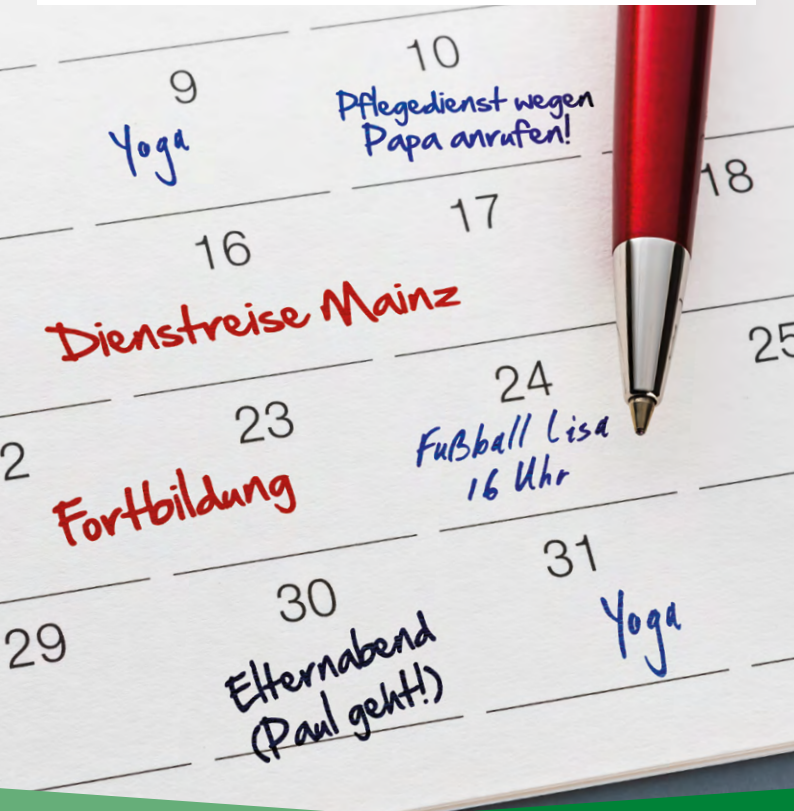 9
Yoga
10
Pflegedienst wegen
Papa anrufen!
16
17
18
Dienstreise Mainz
2
23
24
25
Fortbildung
Fußball Lisa
16 Uhr
29
30
31
Elternabend
(Paul geht!)
Yoga